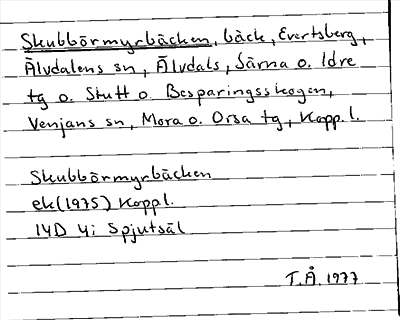 Skubbörmyrbäcken, bäck, Evertsberg,
Älvdalens sn, Älvdals, Särna o. Idre
tg o. Stutt o. Besparingsskogen,
Venjans sn, Mora o. Orsa tg, Kopp. l.
Skubbörmyrbäcken
ek (1975) Koppl.
14D 4i Spjutsäl
T.Å. 1977